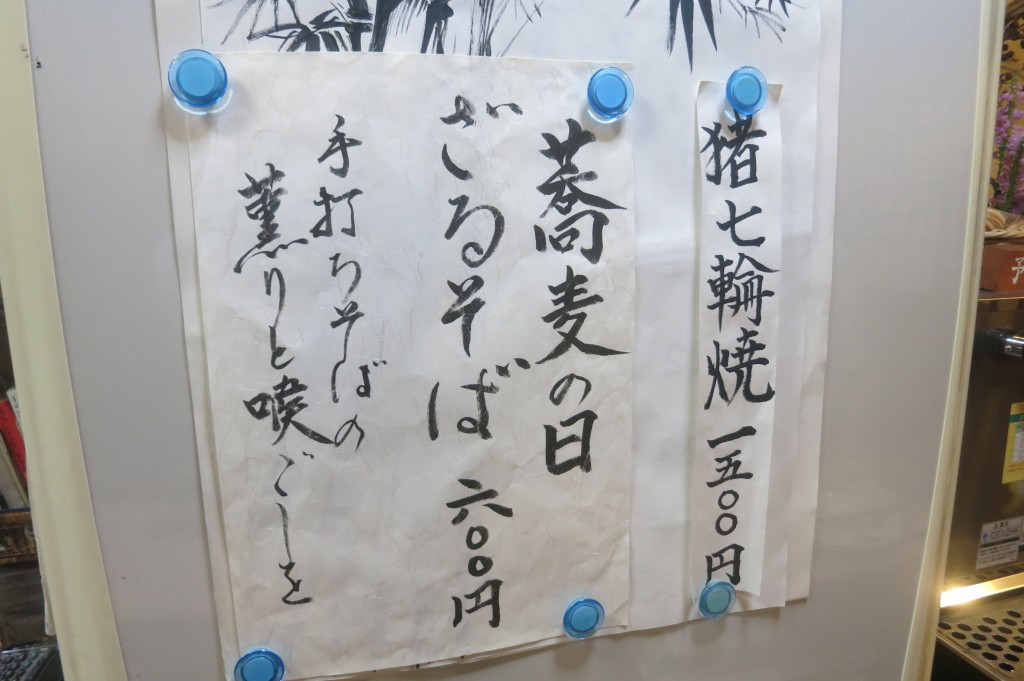 猪七輪焼 一五〇〇円
蕎麦の日
ざるそば 六〇〇円
手打ちそばの
薫りと喉ごしを